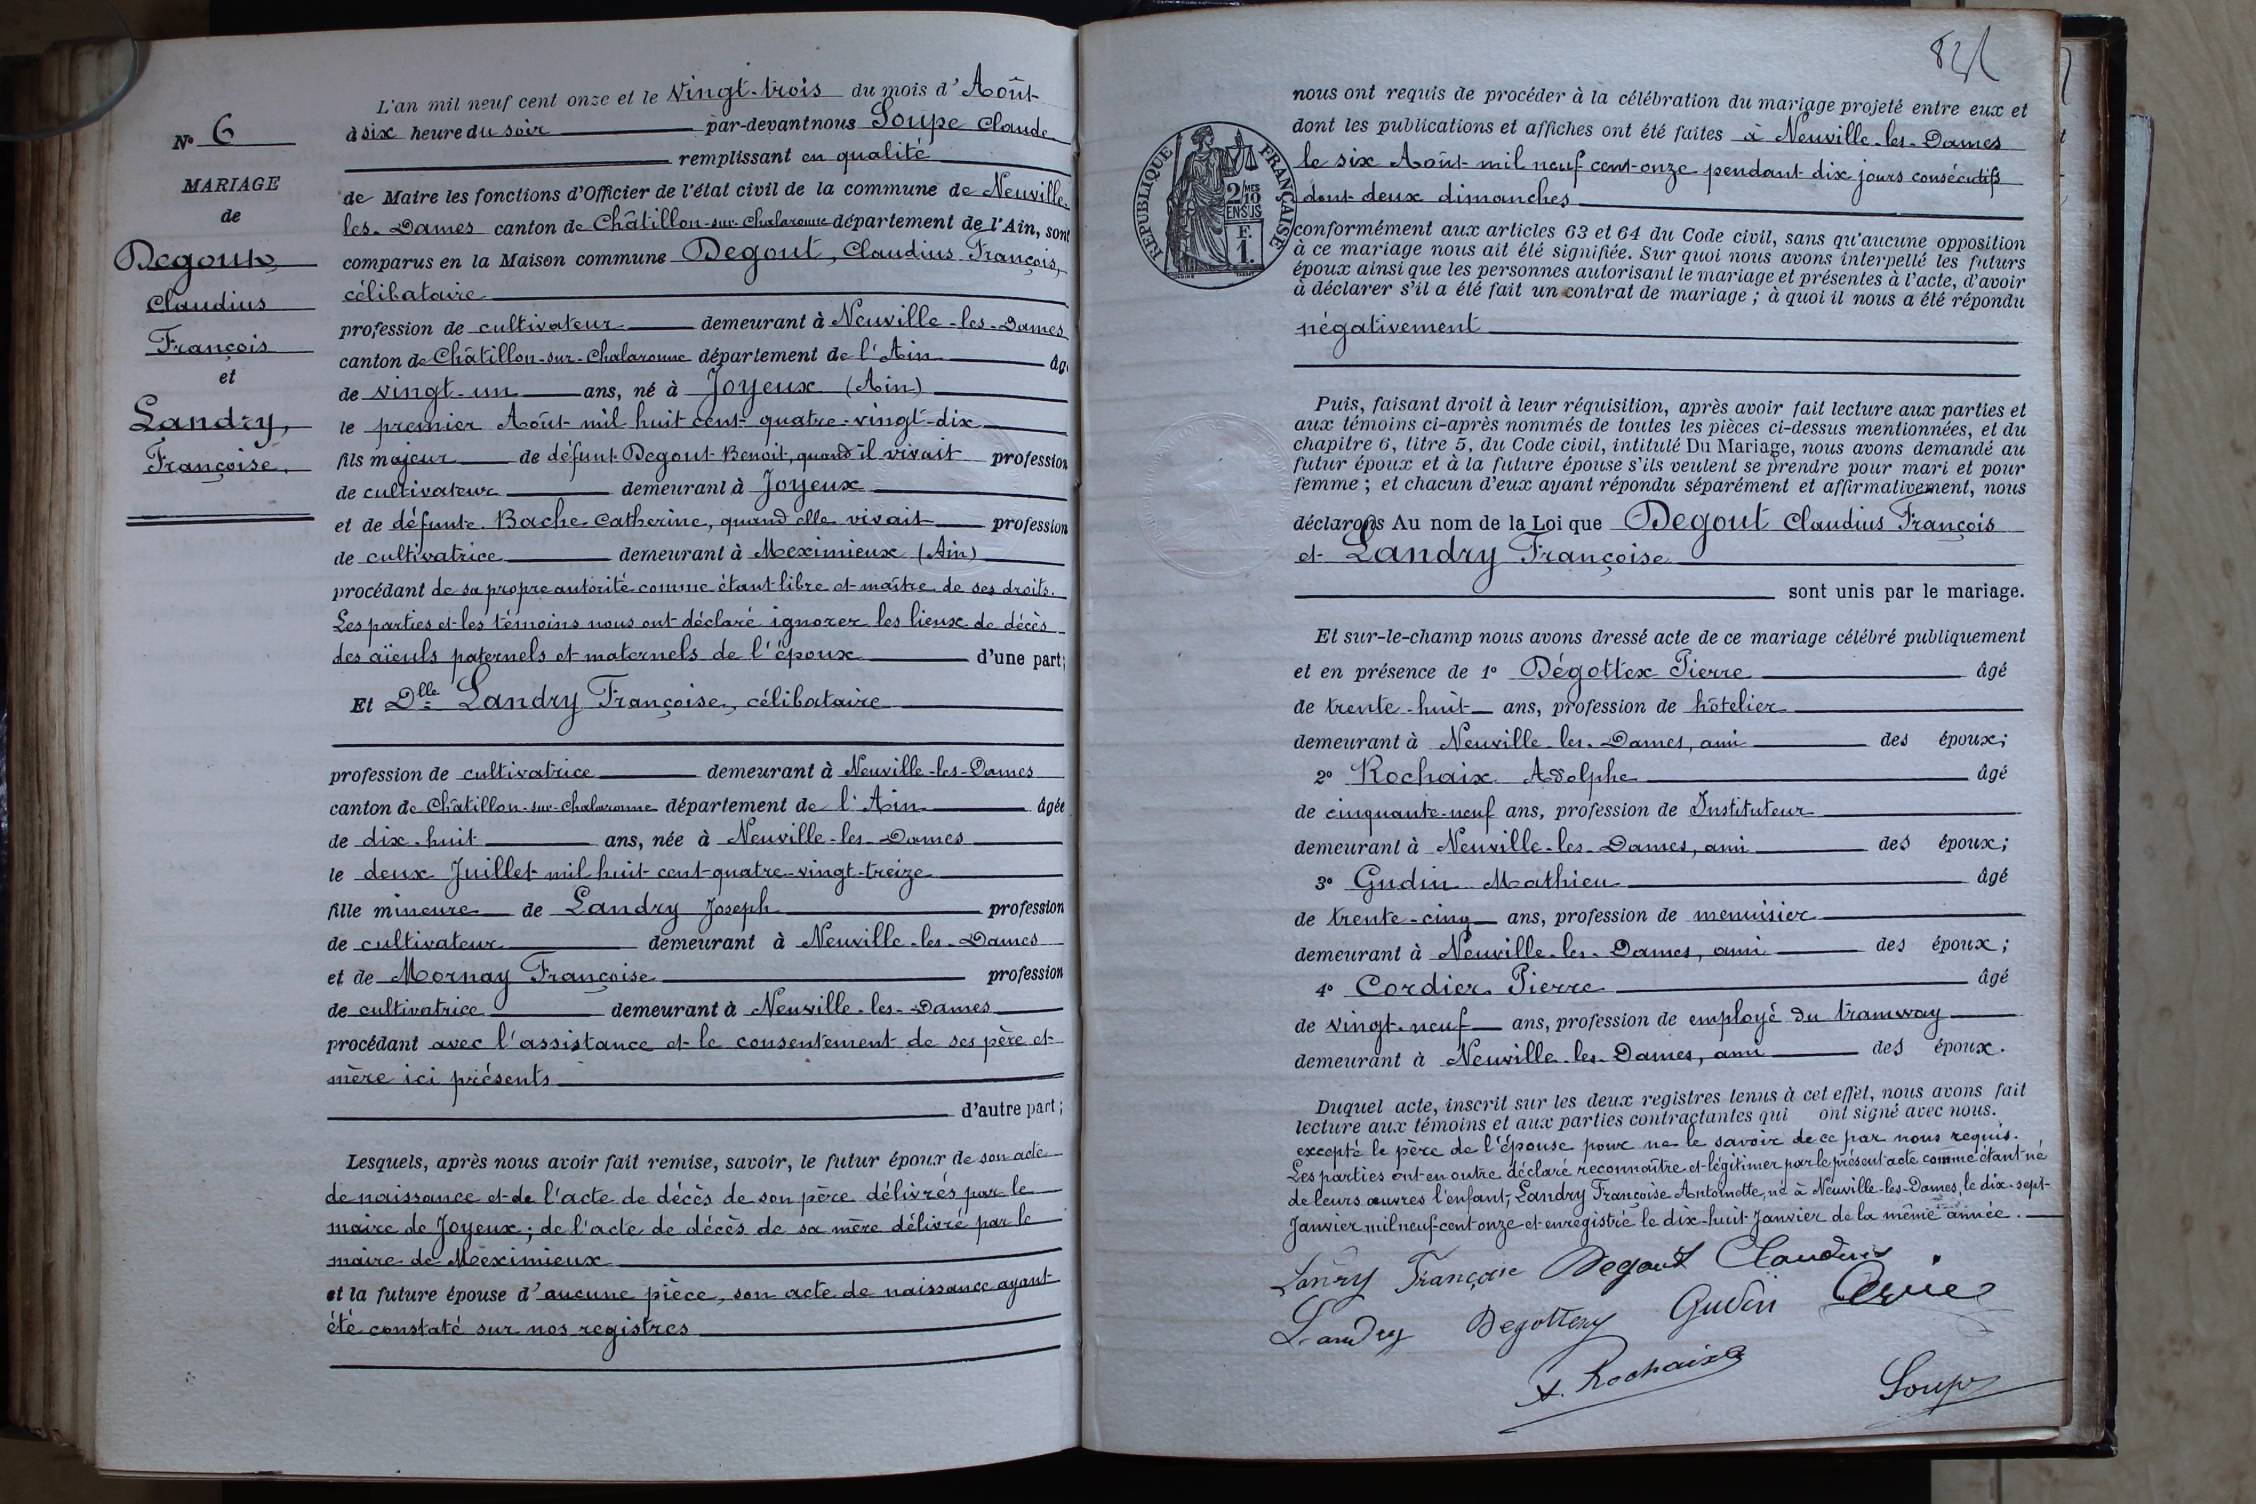 N° 6
MARIAGE
de
Degout,
Claudius
François
et
Landry,
Françoise.
L'an mil neuf cent onze et le vingt-trois du mois d'Août
à six heure du soir par-devant nous Soupe Claude
remplissant en qualité
de Maire les fonctions d'Officier de l'état civil de la commune de Neuville-
les-Dames canton de Châtillon-sur-Chalaronne département de l'Ain, sont
comparus en la Maison commune Degout, Claudius François,
célibataire
profession de cultivateur demeurant à Neuville-les-Dames
canton de Châtillon-sur-Chalaronne département de l'Ain âgé
de vingt-un ans, né à Joyeux (Ain)
le premier Août mil huit cent quatre-vingt-dix
fils majeur de défunt Degout Benoit, quand il vivait profession
de cultivateur demeurant à Joyeux
et de défunte Bache Catherine, quand elle vivait profession
de cultivatrice demeurant à Meximieux (Ain)
procédant de sa propre autorité comme étant libre et maître de ses droits.
Les parties et les témoins nous ont déclaré ignorer les lieux de décès
des aïeuls paternels et maternels de l'époux d'une part;
Et Dlle Landry Françoise, célibataire
profession de cultivatrice demeurant à Neuville-les-Dames
canton de Châtillon-sur-Chalaronne département de l'Ain âgée
de dix-huit ans, née à Neuville-les-Dames
le deux Juillet mil huit cent quatre-vingt-treize
fille mineure de Landry Joseph profession
de cultivateur demeurant à Neuville-les-Dames
et de Mornay Françoise profession
de cultivatrice demeurant à Neuville-les-Dames
procédant avec l'assistance et le consentement de ses père et
mère ici présents
d'autre part;
Lesquels, après nous avoir fait remise, savoir, le futur époux de son acte
de naissance et de l'acte de décès de son père délivrés par le
maire de Joyeux; de l'acte de décès de sa mère délivré par le
maire de Meximieux
et la future épouse d'aucune pièce, son acte de naissance ayant
été constaté sur nos registres
nous ont requis de procéder à la célébration du mariage projeté entre eux et
dont les publications et affiches ont été faites à Neuville-les-Dames
le six Août mil neuf cent onze pendant dix jours consécutifs
dont deux dimanches
RÉPUBLIQUE FRANÇAISE
2/10MES
EN SUS
F.
1.
conformément aux articles 63 et 64 du Code civil, sans qu'aucune opposition
à ce mariage nous ait été signifiée. Sur quoi nous avons interpellé les futurs
époux ainsi que les personnes autorisant le mariage et présentes à l'acte, d'avoir
à déclarer s'il a été fait un contrat de mariage; à quoi il nous a été répondu
négativement
Puis, faisant droit à leur réquisition, après avoir fait lecture aux parties et
aux témoins ci-après nommés de toutes les pièces ci-dessus mentionnées, et du
chapitre 6, titre 5, du Code civil, intitulé Du Mariage, nous avons demandé au
futur époux et à la future épouse s'ils veulent se prendre pour mari et pour
femme; et chacun d'eux ayant répondu séparément et affirmativement, nous
déclarons Au nom de la Loi que Degout Claudius François
et Landry Françoise
sont unis par le mariage.
Et sur-le-champ nous avons dressé acte de ce mariage célébré publiquement
et en présence de 1° Dégottex Pierre âgé
de trente-huit ans, profession de hôtelier
demeurant à Neuville-les-Dames, ami des époux;
2° Rochaix Adolphe âgé
de cinquante-neuf ans, profession de Instituteur
demeurant à Neuville-les-Dames, ami des époux;
3° Gudin Mathieu âgé
de trente-cinq ans, profession de menuisier
demeurant à Neuville-les-Dames, ami des époux;
4° Cordier Pierre âgé
de vingt-neuf ans, profession de employé du tramway
demeurant à Neuville-les-Dames, ami des époux.
Duquel acte, inscrit sur les deux registres tenus à cet effet, nous avons fait
lecture aux témoins et aux parties contractantes qui ont signé avec nous.
excepté le père de l'épouse pour ne le savoir de ce par nous requis.
Les parties ont en outre déclaré reconnaître et légitimer par le présent acte comme étant né
de leurs œuvres l'enfant, Landry Françoise Antoinette, né à Neuville-les-Dames, le dix-sept
Janvier mil neuf cent onze et enregistré le dix-huit Janvier de la même année.
Landry Françoise Degout Claudius
Landry Degottex Gudin
A. Rochaix
Soupe